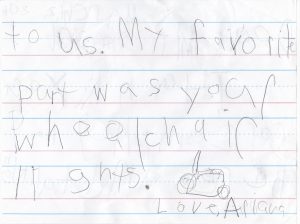 to us. My favorite
part was your
wheelchair
lights.
Love, Allana